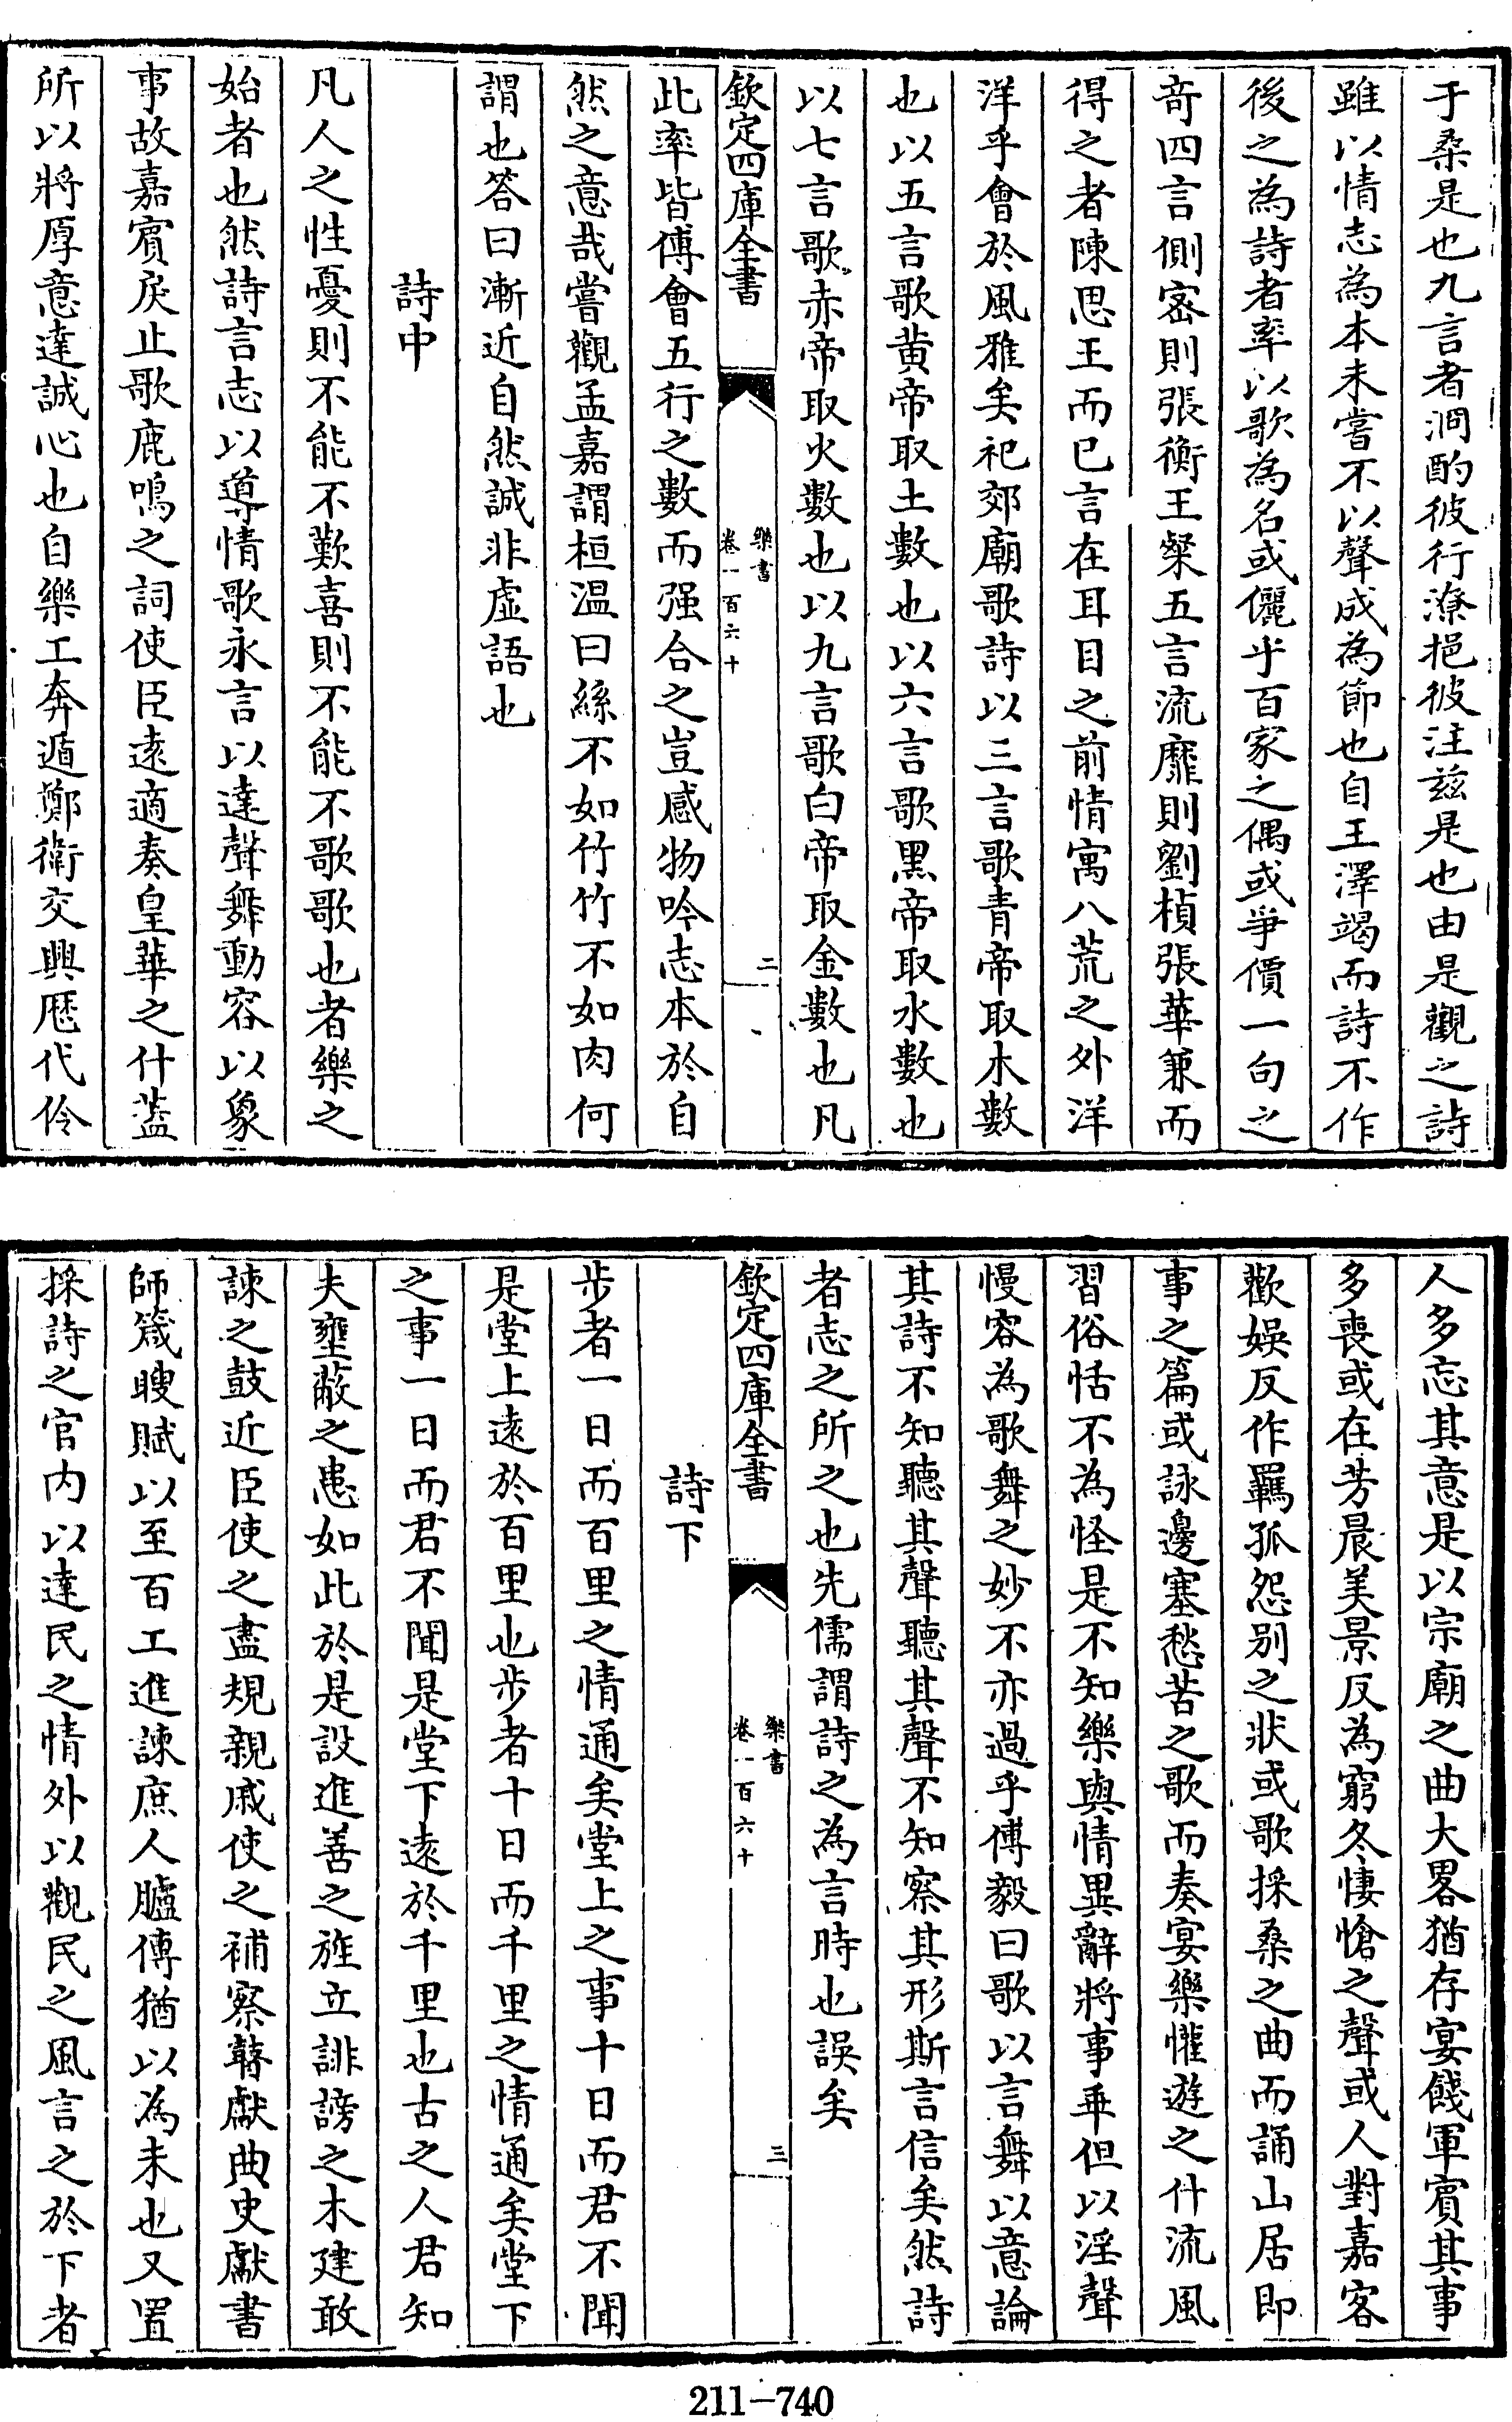 于桑是也九言者泂酌彼行潦挹彼注兹是也由是觀之詩
雖以情志為本未嘗不以聲成為節也自王澤竭而詩不作
後之為詩者率以歌為名或儷乎百家之偶或爭價一句之
竒四言側宻則張衡王粲五言流靡則劉楨張華兼而
得之者陳思王而已言在耳目之前情寓八荒之外洋
洋乎會於風雅矣祀郊廟歌詩以三言歌青帝取木數
也以五言歌黄帝取土數也以六言歌黑帝取水數也
以七言歌赤帝取火數也以九言歌白帝取金數也凡
欽定四庫全書
樂書
卷一百六十
二
此率皆傅會五行之數而强合之豈感物吟志本於自
然之意哉嘗觀孟嘉謂桓温曰絲不如竹竹不如肉何
謂也答曰漸近自然誠非虛語也
詩中
凡人之性憂則不能不歎喜則不能不歌歌也者樂之
始者也然詩言志以導情歌永言以達聲舞動容以象
事故嘉賓戾止歌鹿鳴之詞使臣逺適奏皇華之什葢
所以將厚意達誠心也自樂工奔遁鄭衛交興厯代伶
人多忘其意是以宗廟之曲大畧猶存宴餞軍賓其事
多喪或在芳晨美景反為窮冬悽愴之聲或人對嘉客
歡娛反作羈孤怨别之狀或歌採桑之曲而誦山居即
事之篇或詠邊塞愁苦之歌而奏宴樂懽遊之什流風
習俗恬不為怪是不知樂與情異辭將事乖但以淫聲
慢容為歌舞之妙不亦過乎傅毅曰歌以言舞以意論
其詩不知聽其聲聽其聲不知察其形斯言信矣然詩
者志之所之也先儒謂詩之為言時也誤矣
欽定四庫全書
樂書
卷一百六十
三
詩下
步者一日而百里之情通矣堂上之事十日而君不聞
是堂上逺於百里也步者十日而千里之情通矣堂下
之事一日而君不聞是堂下逺於千里也古之人君知
夫壅蔽之患如此於是設進善之旌立誹謗之木建敢
諫之鼓近臣使之盡規親戚使之補察瞽獻曲史獻書
師箴瞍賦以至百工進諫庶人臚傳猶以為未也又置
採詩之官内以達民之情外以觀民之風言之於下者
211-740